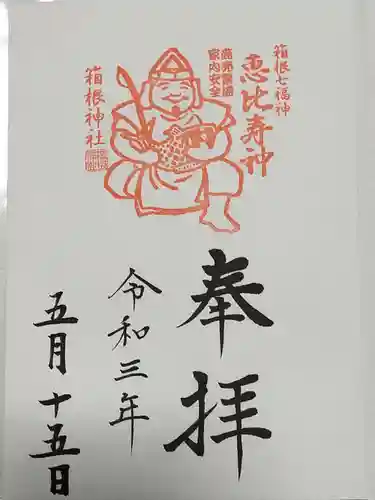 箱根七福神
恵比寿神
商売繁盛
家内安全
箱根神社
奉拝
令和三年
五月十五日